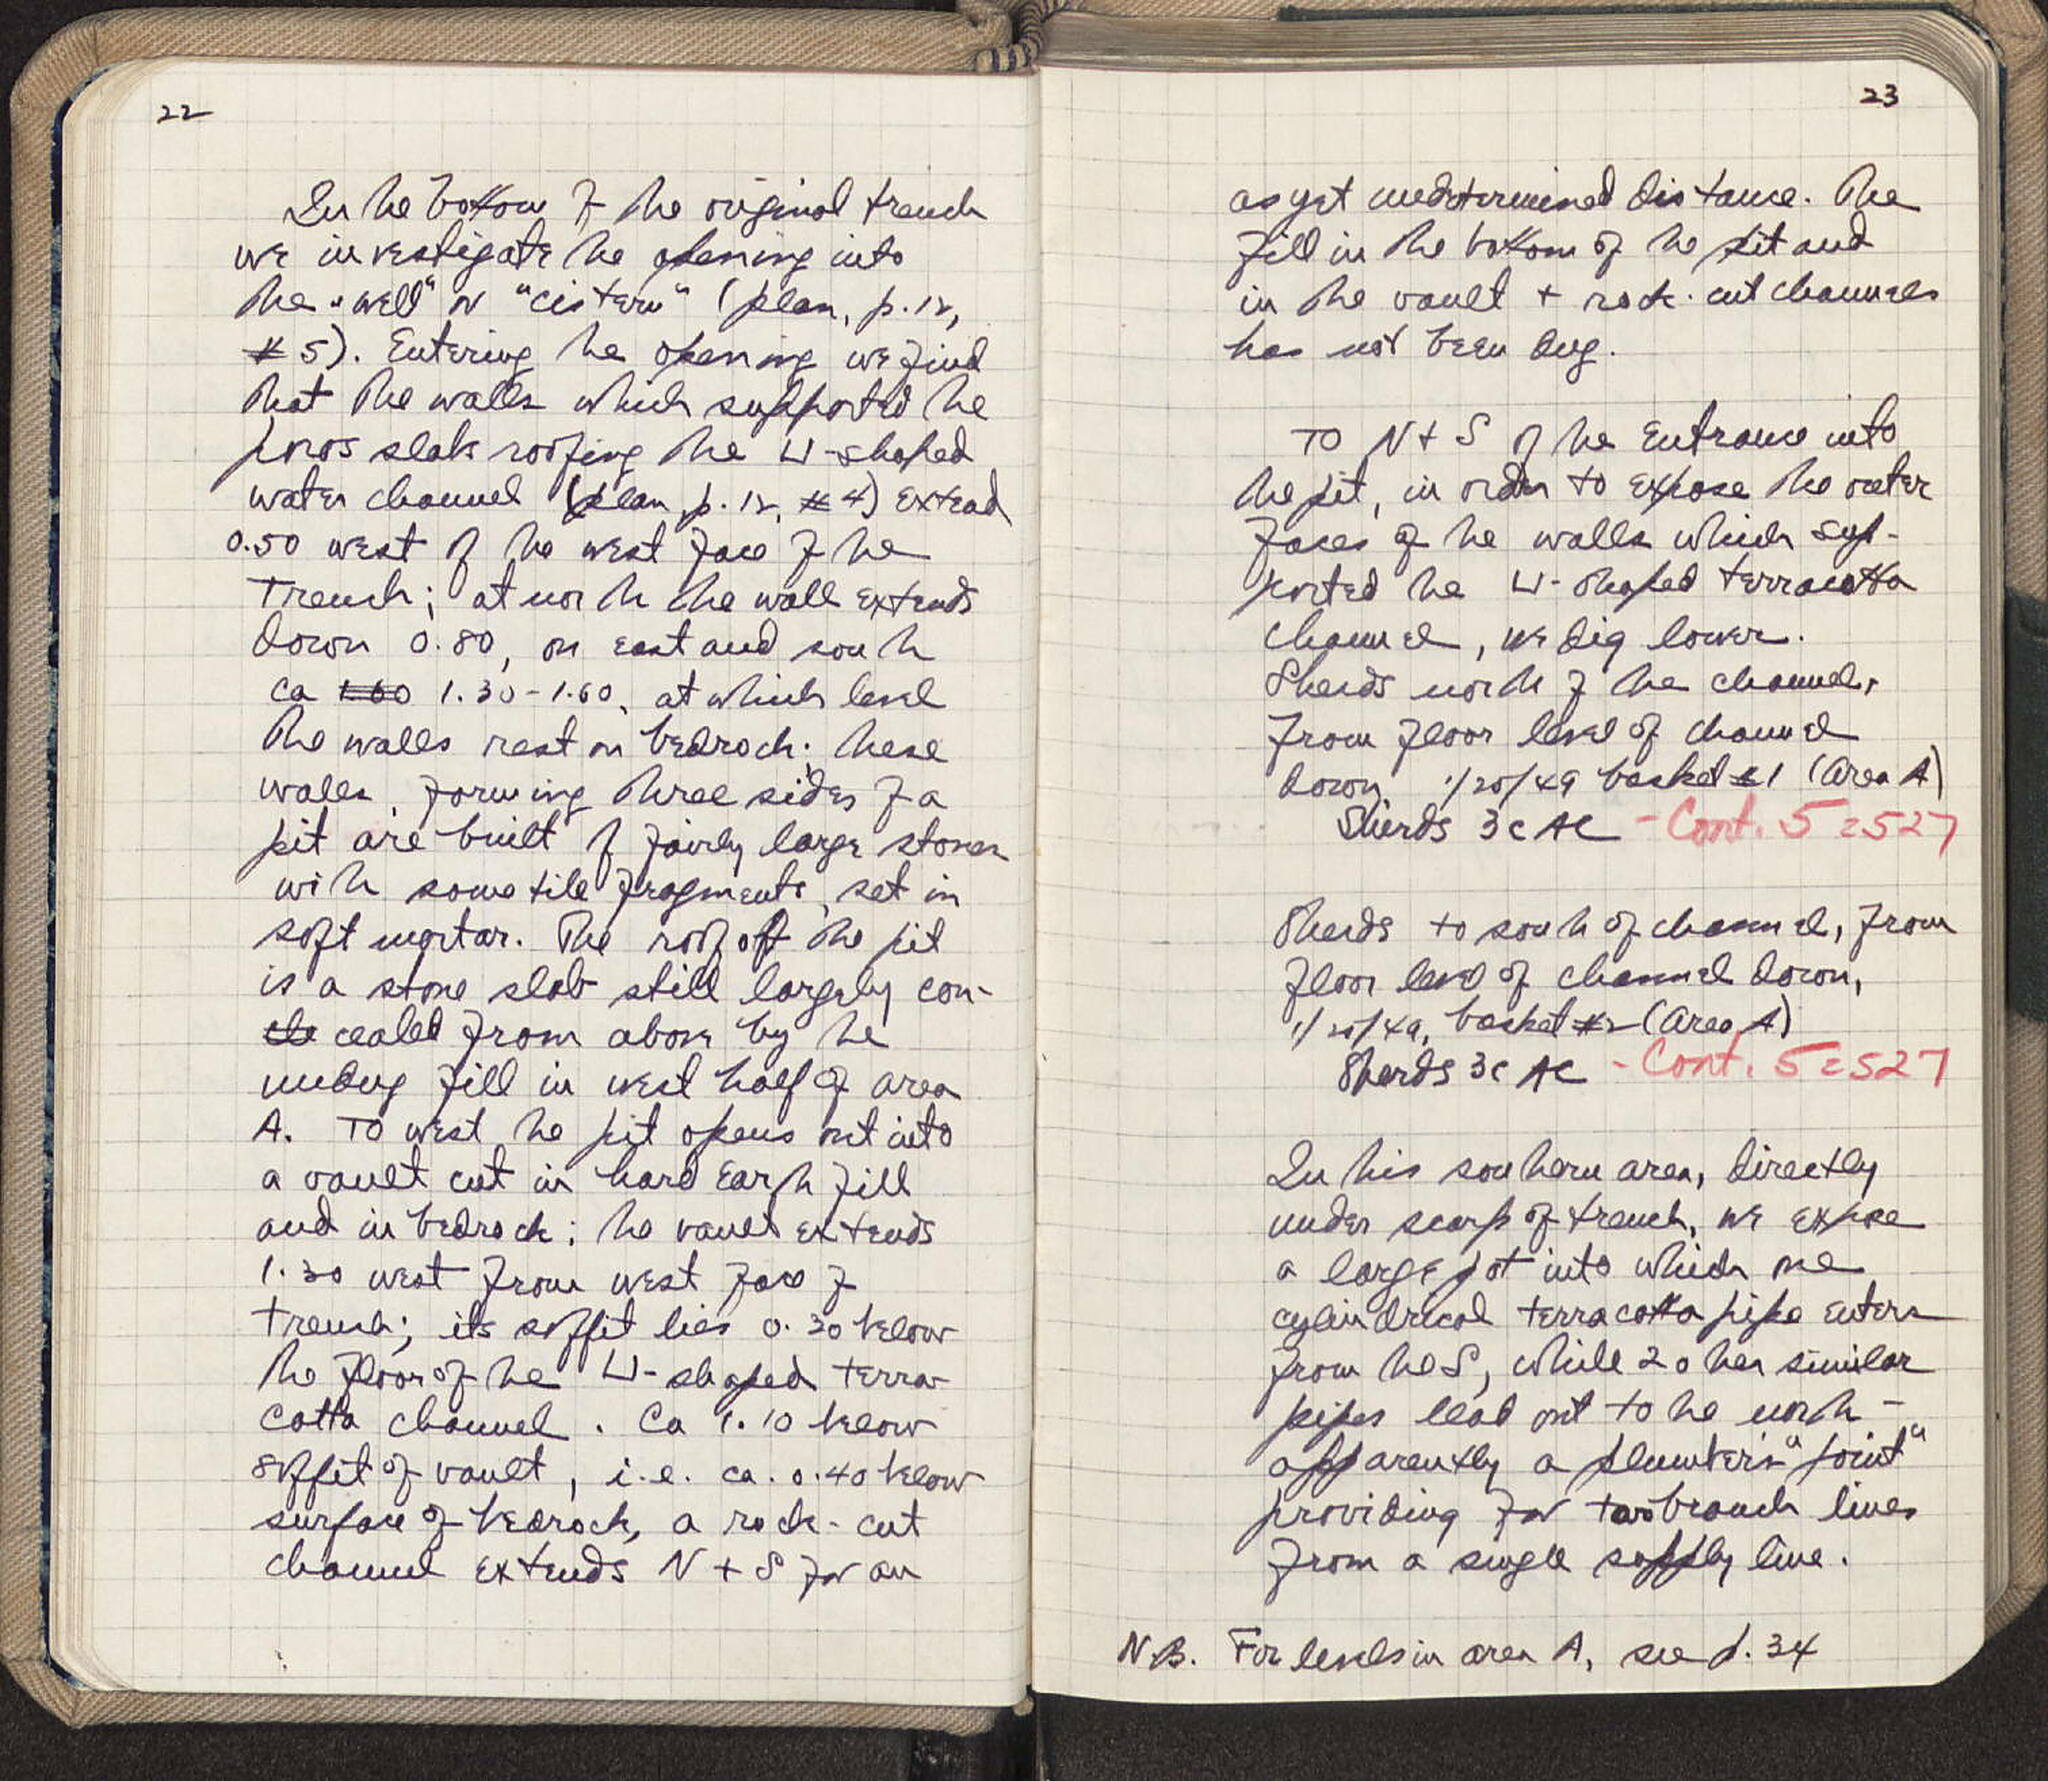 22
In the bottom of the original trench
we investigate the opening into
the "well" or "cistern" (plan, p. 12,
#5). Entering the opening we find
that the walls which supported the
poros slab roofing the ⊔-shaped
water channel (plan, p. 12, #4) extend
0.50 west of the west face of the
trench; at north the wall extends
down 0.80, on east and south
ca 1.60 1.30-1.60, at which level
the walls rest on bedrock; these
walls, forming three sides of a
pit are built of fairly large stones
with some tile fragments, set in
soft mortar. The roof of the pit
is a stone slab still largely con-
cealed from above by the
undug fill in west half of area
A. To west the pit opens out into
a vault cut in hard earth fill
and in bedrock; the vault extends
1.30 west from west face of
trench; its soffit lies 0.30 below
the floor of the ⊔-shaped terra-
cotta channel. Ca 1.10 below
soffit of vault, i.e. ca. 0.40 below
surface of bedrock, a rock-cut
channel extends N + S for an
23
as yet undetermined distance. The
fill in the bottom of the pit and
in the vault + rock-cut channels
has not been dug.
To N + S of the entrance into
the pit, in order to expose the outer
faces of the walls which sup-
ported the ⊔-shaped terracotta
channel, we dig lower.
Sherds north of the channel,
from floor level of channel
down 1/20/49 basket #1 (Area A)
Sherds 3c AC - Cont. 52527
Sherds to south of channel, from
floor level of channel down,
1/20/49, basket #2 (Area A)
Sherds 3c AC - Cont. 52527
In this southern area, directly
under scarp of trench, we expose
a large pot into which one
cylindrical terracotta pipe enters
from the S, while 2 other similar
pipes lead out to the north -
apparently a plumber's "joint"
providing for two branch lines
from a single supply line.
N.B. For levels in area A, see p. 34